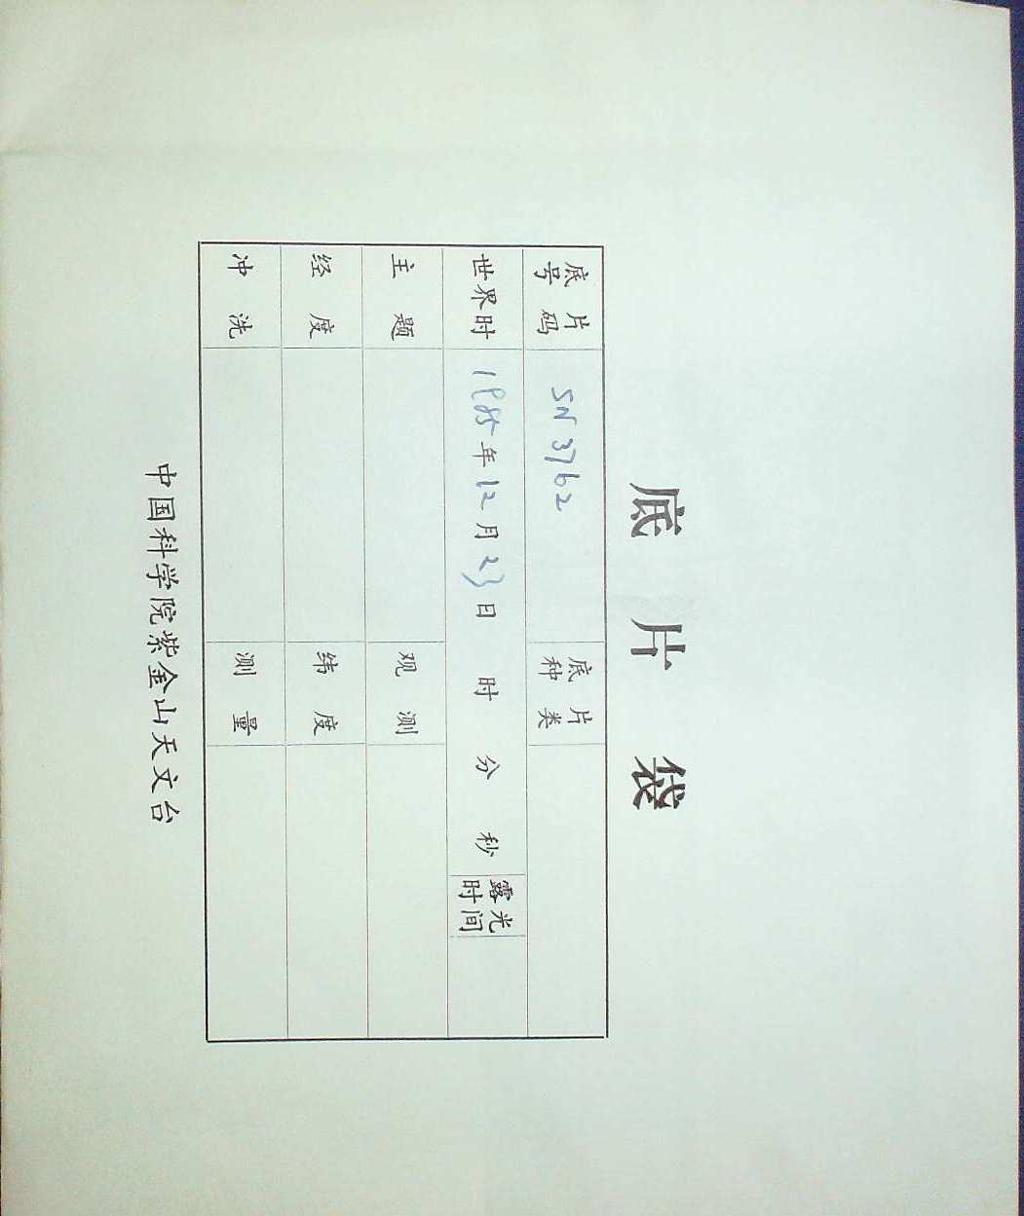 底片袋
底片号码 SN3762 底片种类
世界时 1985年12月23日 时 分 秒 露光时间
主题 观测
经度 纬度
冲洗 测量
中国科学院紫金山天文台